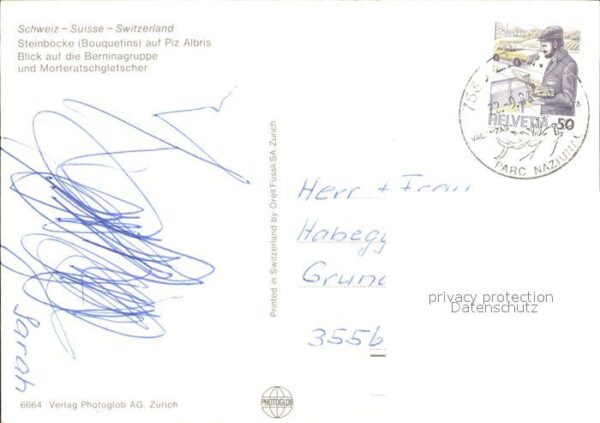 Schweiz – Suisse – Switzerland
Steinböcke (Bouquetins) auf Piz Albris
Blick auf die Berninagruppe
und Morteratschgletscher
HELVETIA 50
PARC NAZIUNAL
Printed in Switzerland by Orell Füssli SA Zurich
Herr + Frau
Habegg
Grund
3556
privacy protection
Datenschutz
Sarah
PHOTOGLOB
6664 Verlag Photoglob AG, Zürich